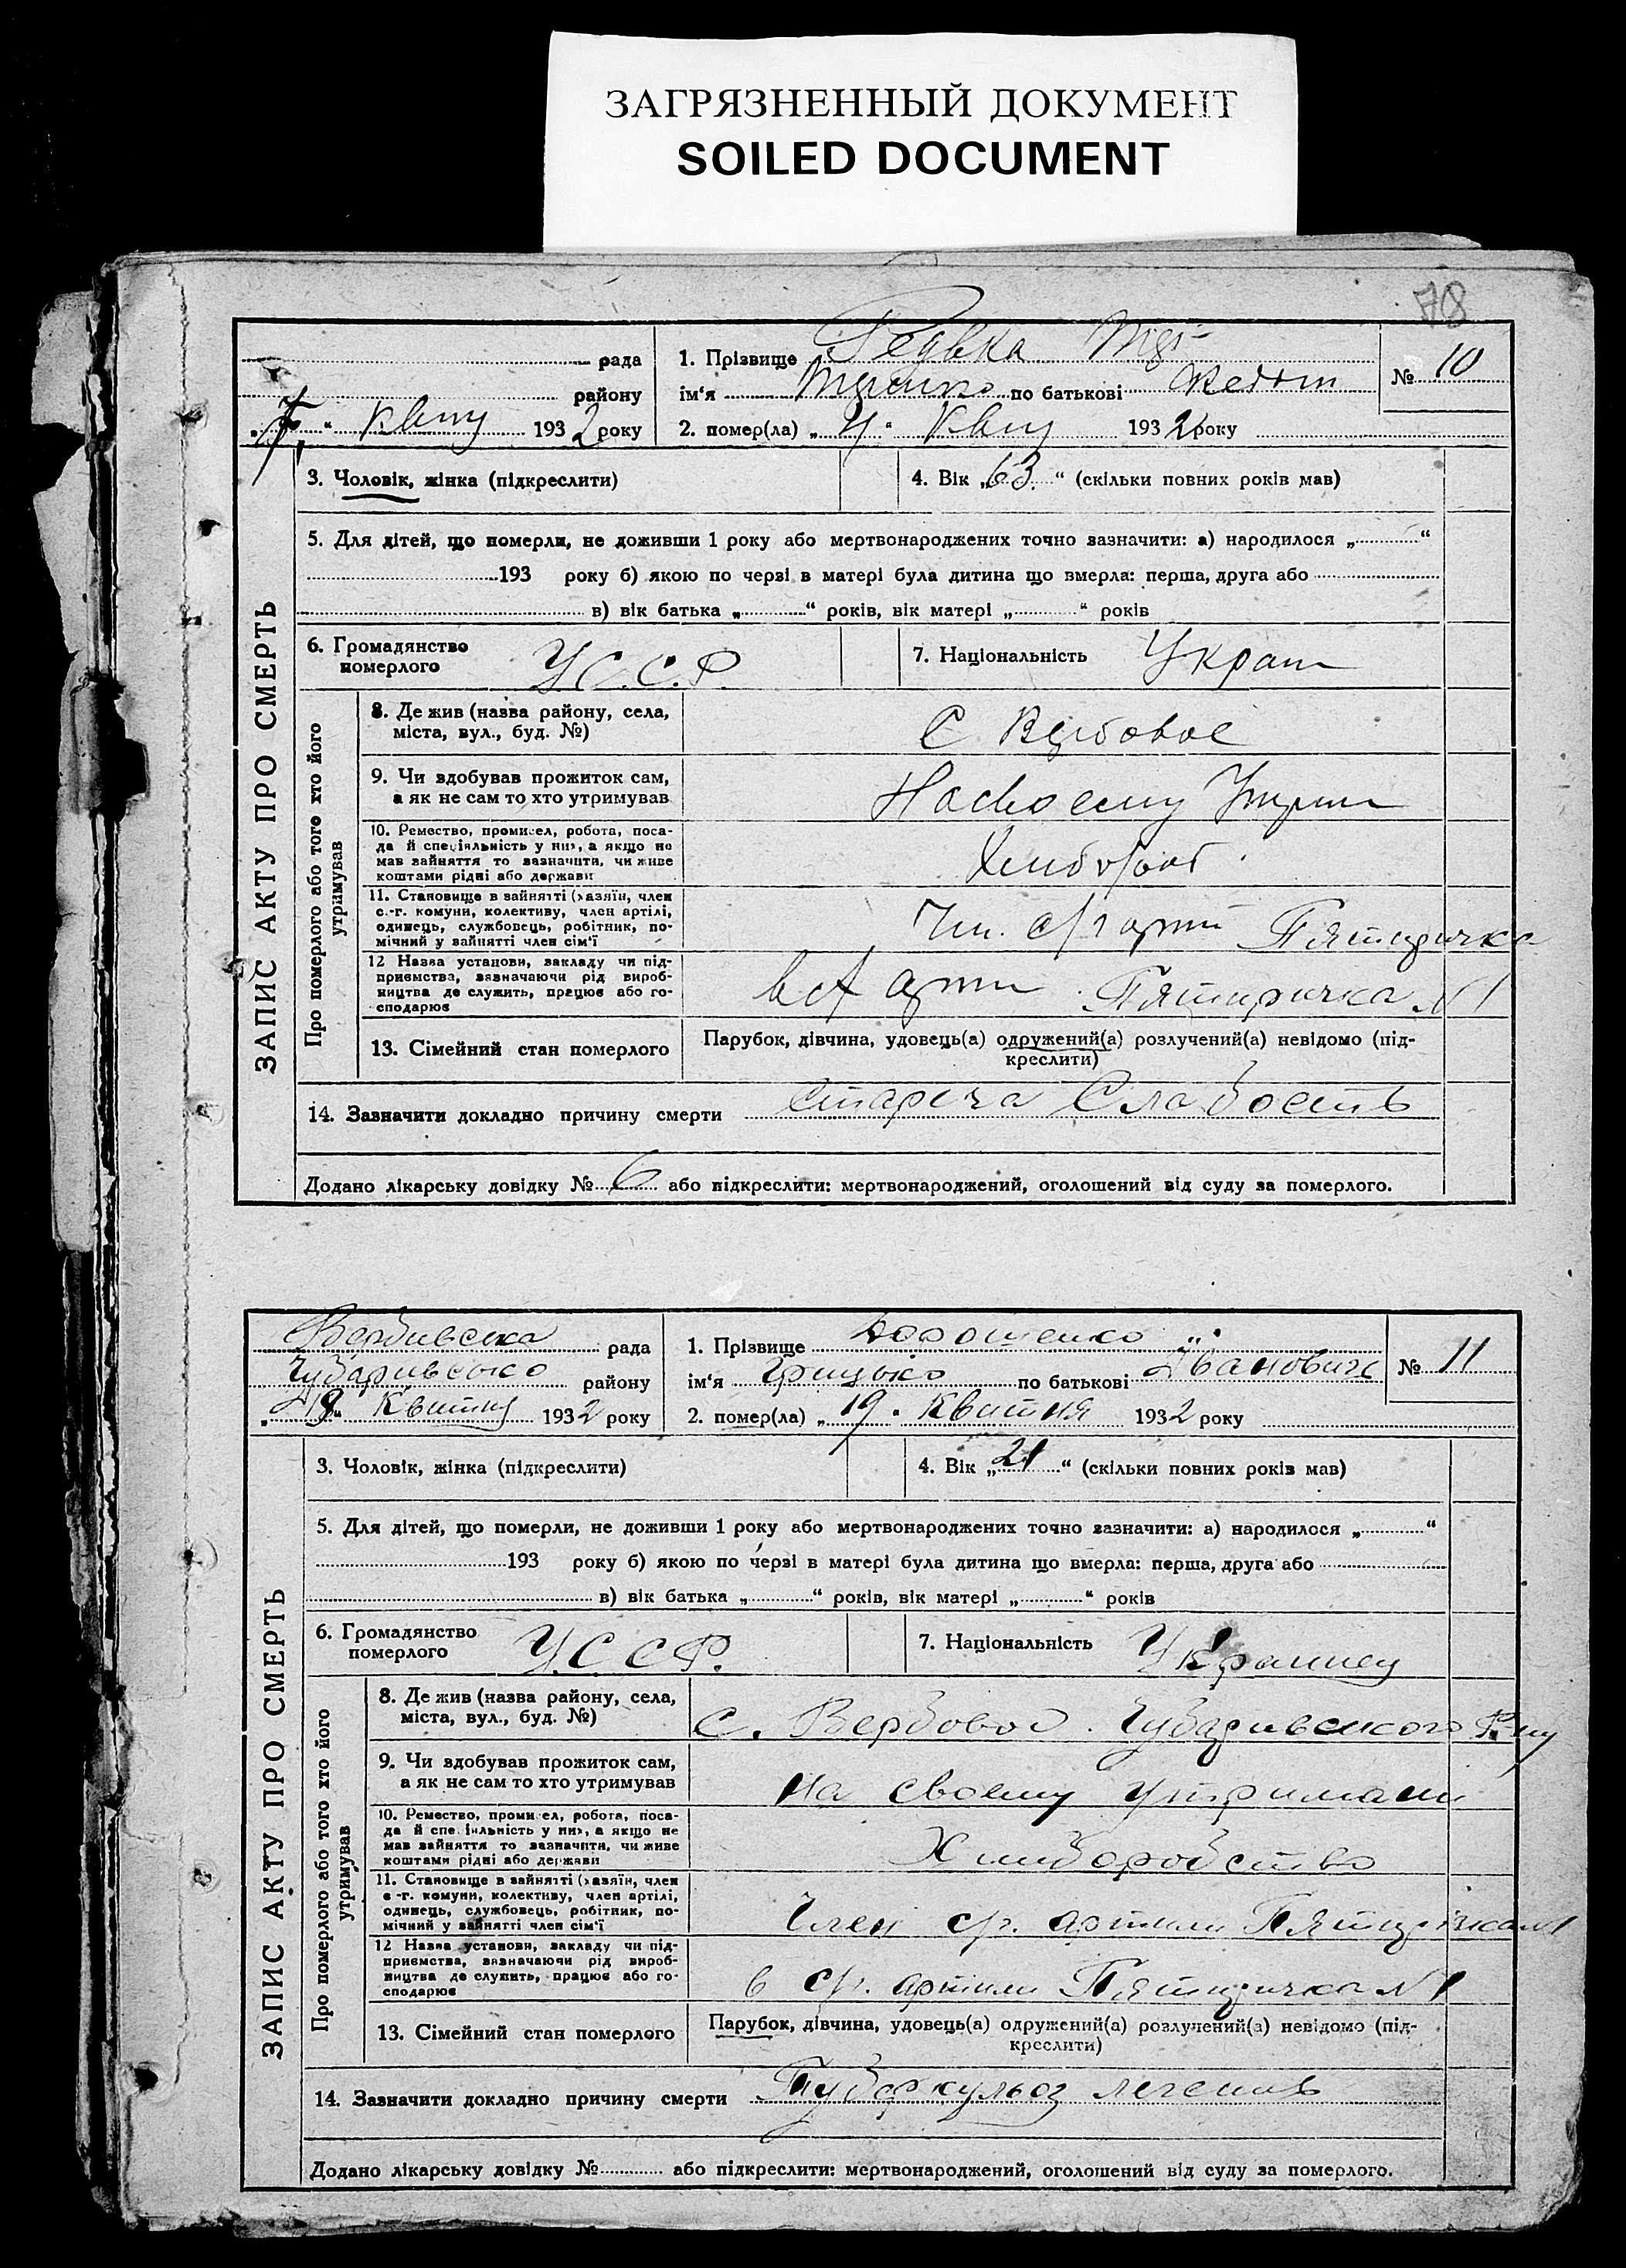 ЗАГРЯЗНЕННЫЙ ДОКУМЕНТ
SOILED DOCUMENT
78
рада
1. Прізвище Редька
№ 10
району
ім‘я по батькові
7 “ 1932 року
2. помер(ла) „ “ 1932 року
3. Чоловік, жінка (підкреслити)
4. Вік „63“ (скільки повних років мав)
5. Для дітей, що померли, не доживши 1 року або мертвонароджених точно зазначити: а) народилося „ “
193 року б) якою по черзі в матері була дитина що вмерла: перша, друга або
в) вік батька „ “ років, вік матері „ “ років
6. Громадянство
померлого
У.С.С.Р.
7. Національність
ЗАПИС АКТУ ПРО СМЕРТЬ
Про померлого або того хто його
утримував
8. Де жив (назва району, села,
міста, вул., буд. №)
С
9. Чи здобував прожиток сам,
а як не сам то хто утримував
10. Ремество, промисел, робота, поса-
да й спеціяльність у них, а якщо не
мав зайняття то зазначити, чи живе
коштами рідні або держави
11. Становище в зайнятті (хазяїн, член
с.-г. комуни, колективу, член артілі,
одинець, службовець, робітник, по-
мічний у зайнятті член сім‘ї
Пятиричка
12 Назва установи, закладу чи під-
приємства, зазначаючи рід вироб-
ництва де служить, працює або го-
сподарює
Пятиричка №1
13. Сімейний стан померлого
Парубок, дівчина, удовець(а) одружений(а) розлучений(а) невідомо (під-
креслити)
14. Зазначити докладно причину смерти стареча Слабость
Додано лікарську довідку № 6 або підкреслити: мертвонароджений, оголошений від суду за померлого.
Вербивська рада
1. Прізвище Дорошенко
№ 11
Чубаривсько району
ім‘я Грицько по батькові Ивановичь
1932 року
2. помер(ла) „19“ Квитня 1932 року
3. Чоловік, жінка (підкреслити)
4. Вік „21“ (скільки повних років мав)
5. Для дітей, що померли, не доживши 1 року або мертвонароджених точно зазначити: а) народилося „ “
193 року б) якою по черзі в матері була дитина що вмерла: перша, друга або
в) вік батька „ “ років, вік матері „ “ років
6. Громадянство
померлого
У.С.С.Р.
7. Національність
Украинец
ЗАПИС АКТУ ПРО СМЕРТЬ
Про померлого або того хто його
утримував
8. Де жив (назва району, села,
міста, вул., буд. №)
с. Вербовое Чубаривського Р-ну
9. Чи здобував прожиток сам,
а як не сам то хто утримував
на своему утримани
10. Ремество, промисел, робота, поса-
да й спеціяльність у них, а якщо не
мав зайняття то зазначити, чи живе
коштами рідні або держави
Хлиборобство
11. Становище в зайнятті (хазяїн, член
с.-г. комуни, колективу, член артілі,
одинець, службовець, робітник, по-
мічний у зайнятті член сім‘ї
Член с/г. артили Пятиричка №1
12 Назва установи, закладу чи під-
приємства, зазначаючи рід вироб-
ництва де служить, працює або го-
сподарює
в с/г. артили Пятиричка №1
13. Сімейний стан померлого
Парубок, дівчина, удовець(а) одружений(а) розлучений(а) невідомо (під-
креслити)
14. Зазначити докладно причину смерти Туберкульоз легенив
Додано лікарську довідку № або підкреслити: мертвонароджений, оголошений від суду за померлого.